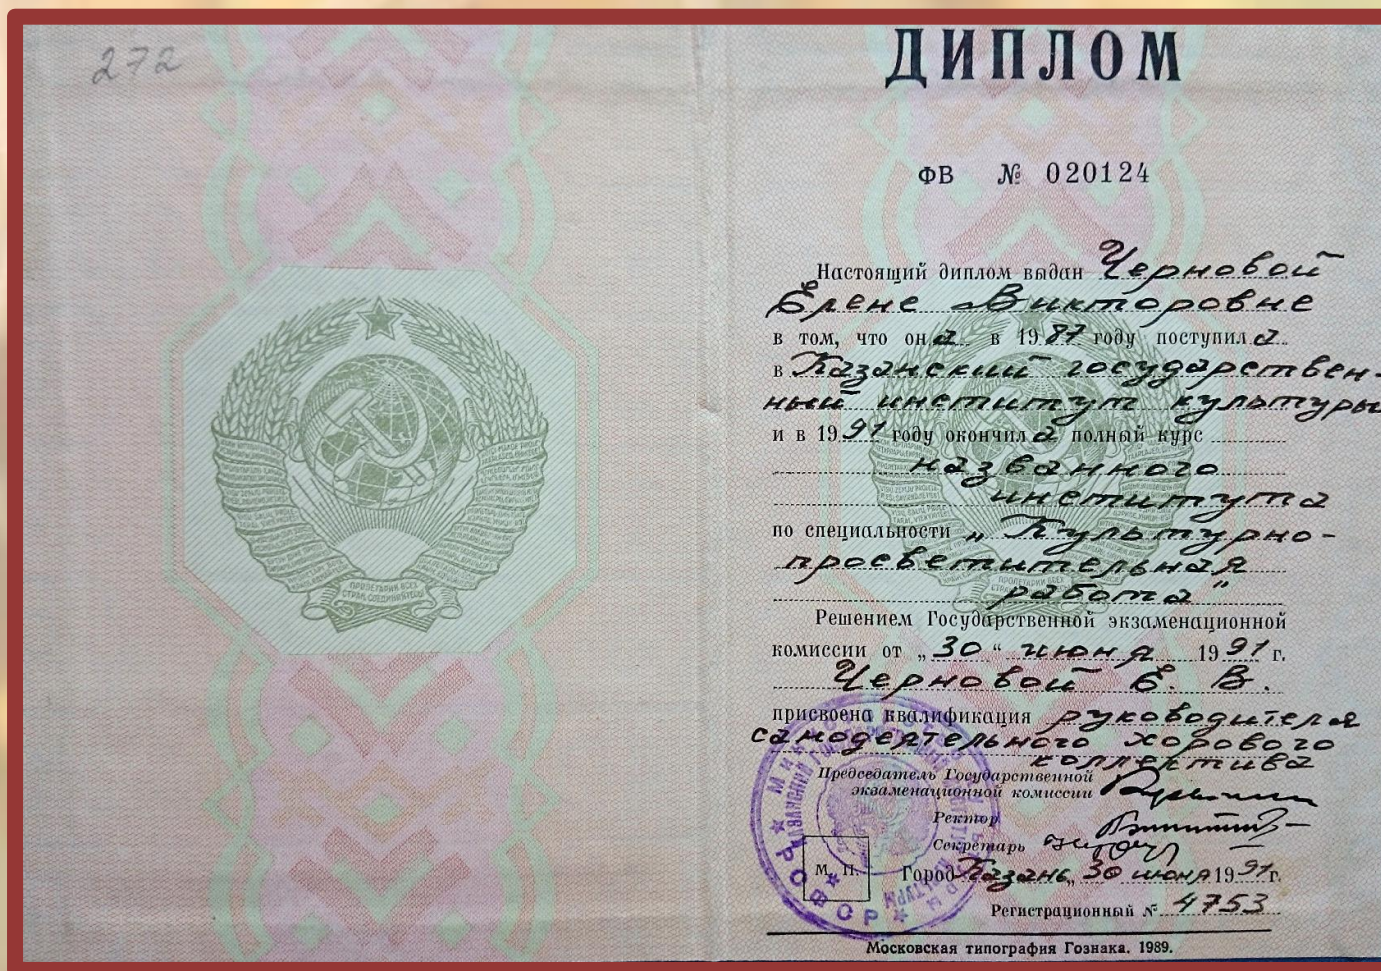 272
ДИПЛОМ
ФВ № 020124
Настоящий диплом выдан Черновой
Елене Викторовне
в том, что она в 1987 году поступила
в Казанский государствен-
ный институт культуры
и в 1991 году окончила полный курс
названного
института
по специальности „Культурно-
просветительная
работа"
Решением Государственной экзаменационной
комиссии от „30“ июня 1991 г.
Черновой Е. В.
присвоена квалификация руководителя
самодеятельного хорового
коллектива
Председатель Государственной
экзаменационной комиссии
Ректор
Секретарь
М. П.
Город Казань, 30 июня 1991 г.
Регистрационный № 4753
Московская типография Гознака. 1989.
ПРОЛЕТАРИИ ВСЕХ
СТРАН, СОЕДИНЯЙТЕСЬ!